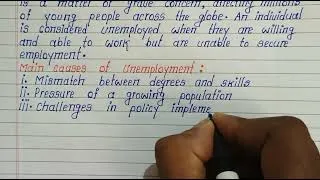 is a matter of grave concern, affecting millions
of young people across the globe. An individual
is considered unemployed when they are willing
and able to work but are unable to secure
employment.
Main causes of Unemployment :
i. Mismatch between degrees and skills
ii. Pressure of a growing population
iii. Challenges in policy impleme